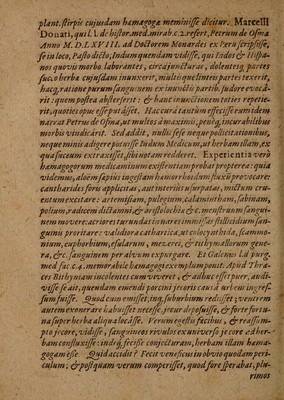 plant. stirpis cuiusdam hamagogæ meminisse dicitur. Marcelli
Donati, qui l. 1. de histor. med. mirab. c. 2. refert, Petrum de Osma
Anno M. D. LXVIII. ad Doctorem Monardes ex Peru scripsisse,
se in loco, Pasto dicto, Indum quendam vidisse, qui Indos & Hispa-
nos quovis morbo laborantes, circa juncturas, dolentesq; partes
suc. o herbæ cujusdam inunxerit, multisque linteis partes texerit,
hacq; ratione purum sanguinem ex inunctis partib. sudore evoca-
rit: quem postea abstersserit: & hanc inunctionem toties repetie-
rit, quoties opus esse putasset. Hac cura tantùm effecisse eumidem
narrat Petrus de Osma, ut multos à maximis, penéq; incurabilibus
morbis vindicârit. Sed addit, nullis sese neque pollicitationibus,
neque minis adigere potuisse Indum Medicum, ut herbam illam, ex
qua succum extraxisset, sibi unitam redderet. Experientia verò
hamagogorum medicaminum existentiam probat propterea: quia
videmus, aloën sæpius ingestam hamorrhoidum fluxũ provocare:
cantharides foris applicitas, aut interius usurpatas, mictum cru-
entum excitare: artemisiam, pulegium, calamintham, sabinam,
polium, radicem dictamni, & aristolochia &c. menstruum sangui-
nem movere: acriores turundas intestinis missas stillicidium san-
guinis proritare: validiora cathartica, ut colocynthida, scammo-
nium, euphorbium, esularum, mezerei, & tithymallorum gene-
ra, &c. sanguinem per alvum expurgare. Et Galenus l. d purg.
med fac. c. 4. memorabile hamagogi exemplum ponit. Apud Thra-
ces Bithyniam incolentes cum viveret, & adhuc esset puer, audi-
visse se ait, quendam emendi porcini jecoris causâ urbem ingres-
sum fuisse. Quod cum emisset, inq; suburbium rediisset; ventrem
autem exonerare habuisset necesse, jecur deposuisse, & forte fortu-
na super herba aliqua locâsse. Verùm egestis fæcibus, & reassum-
pto jecore, vidisse, sanguineos rivulos ex universo jecore ad her-
bam confluxisse: indeq; fecisse conjecturam, herbam illam hama-
gogam esse. Quid accidit? Fecit veneficus in obvio quodam peri-
culum; & postquam verum comperisset, quod fore sperabat, plu-
rimos